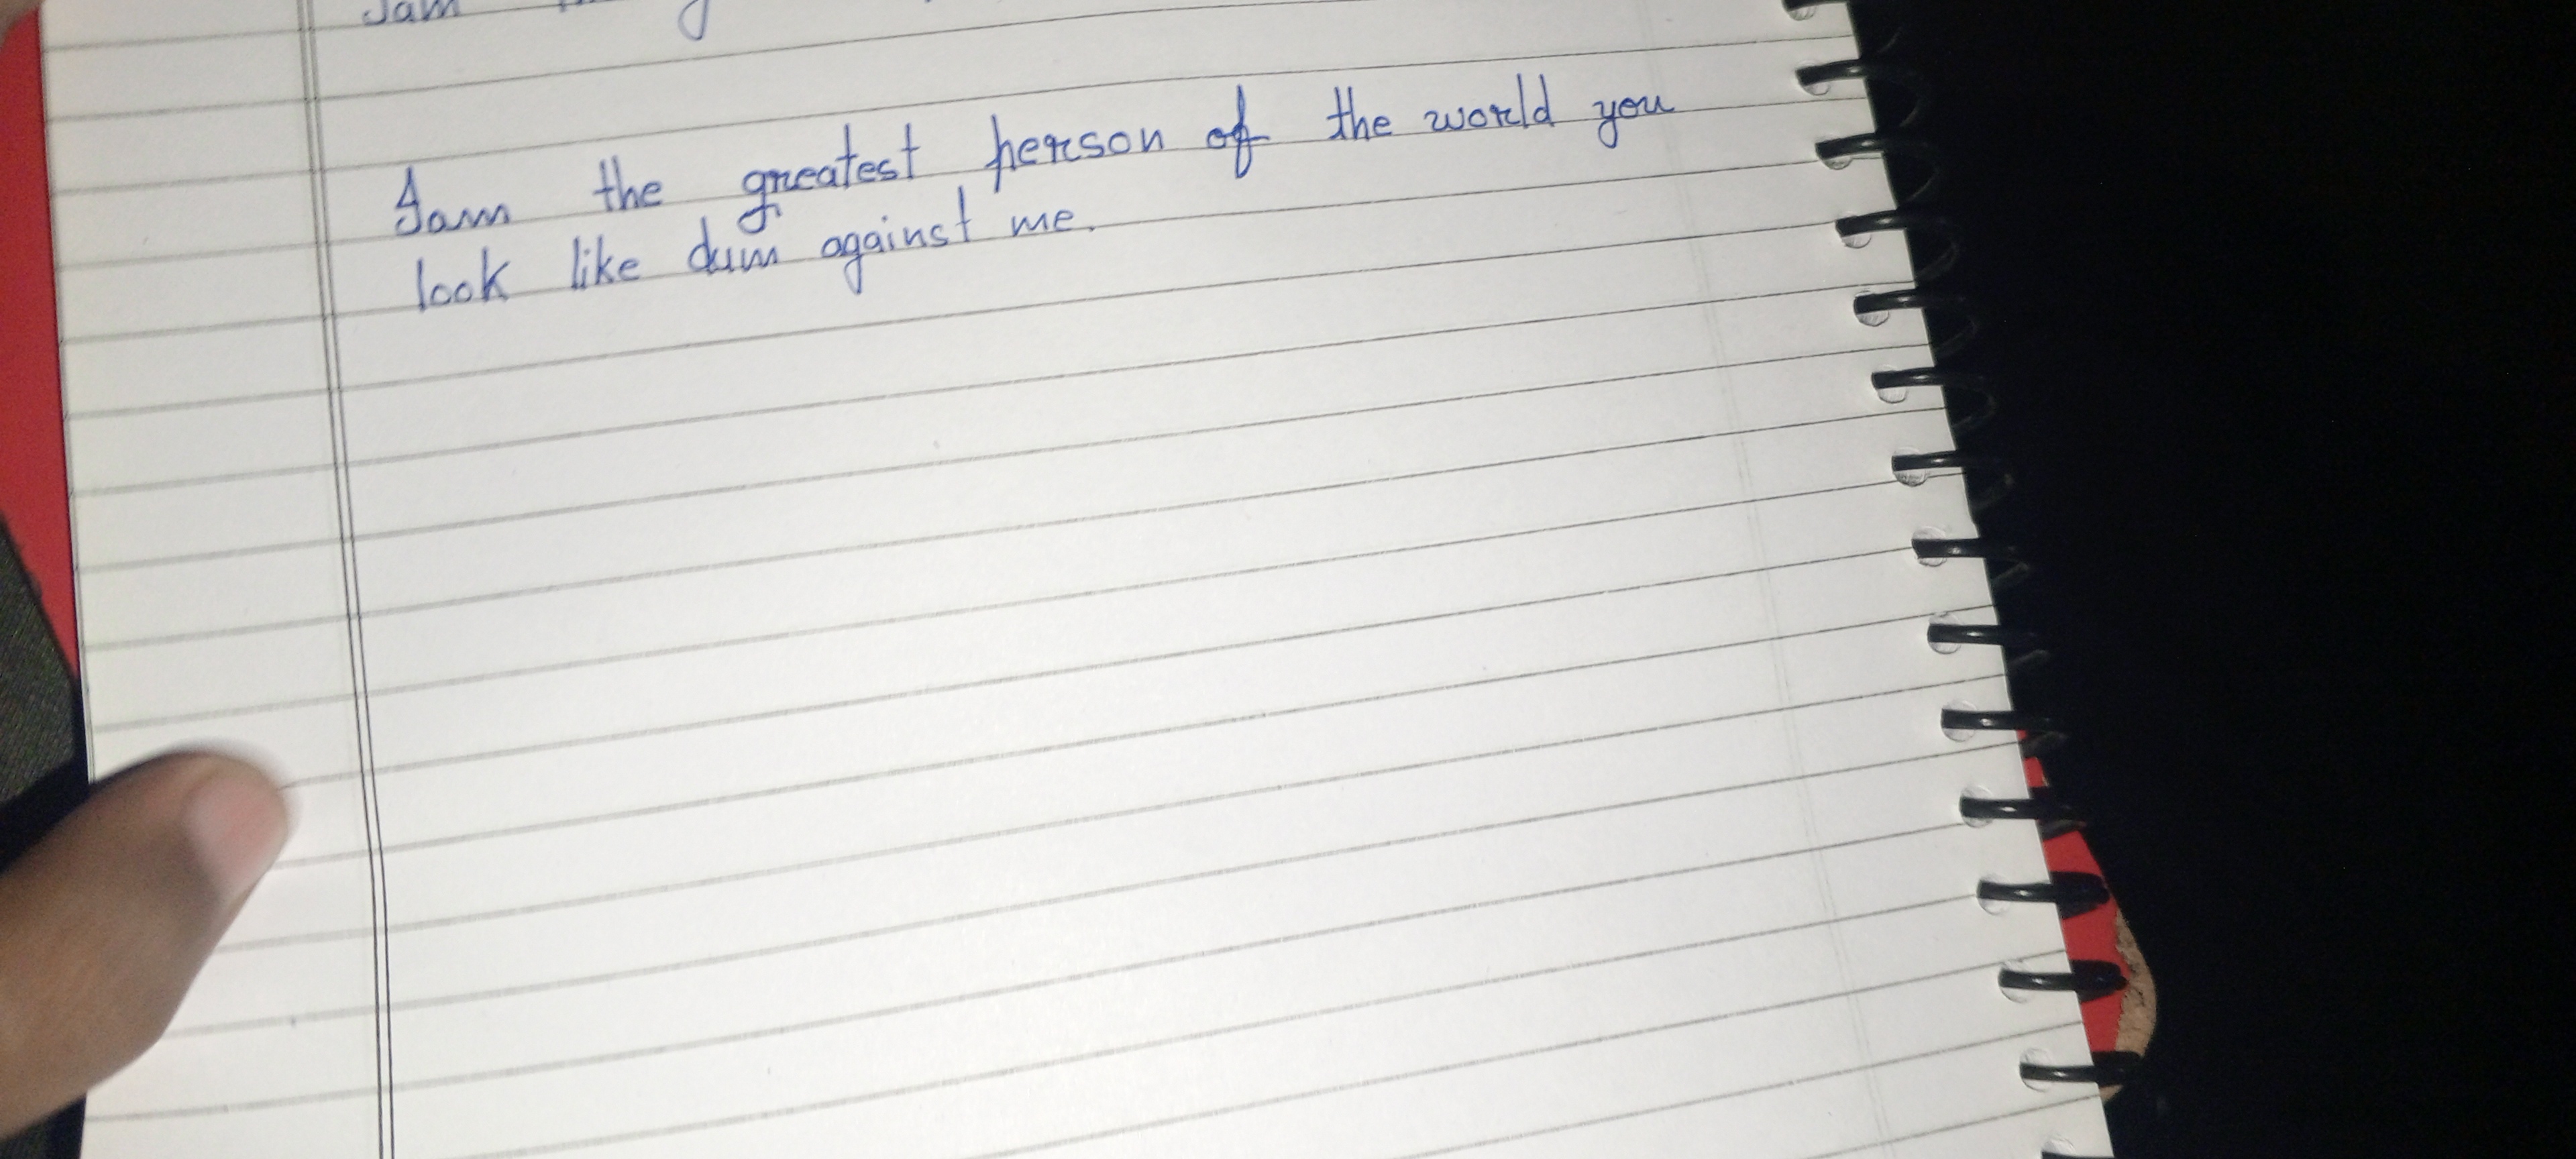 Jam
Iam the greatest person of the world you
look like dum against me.